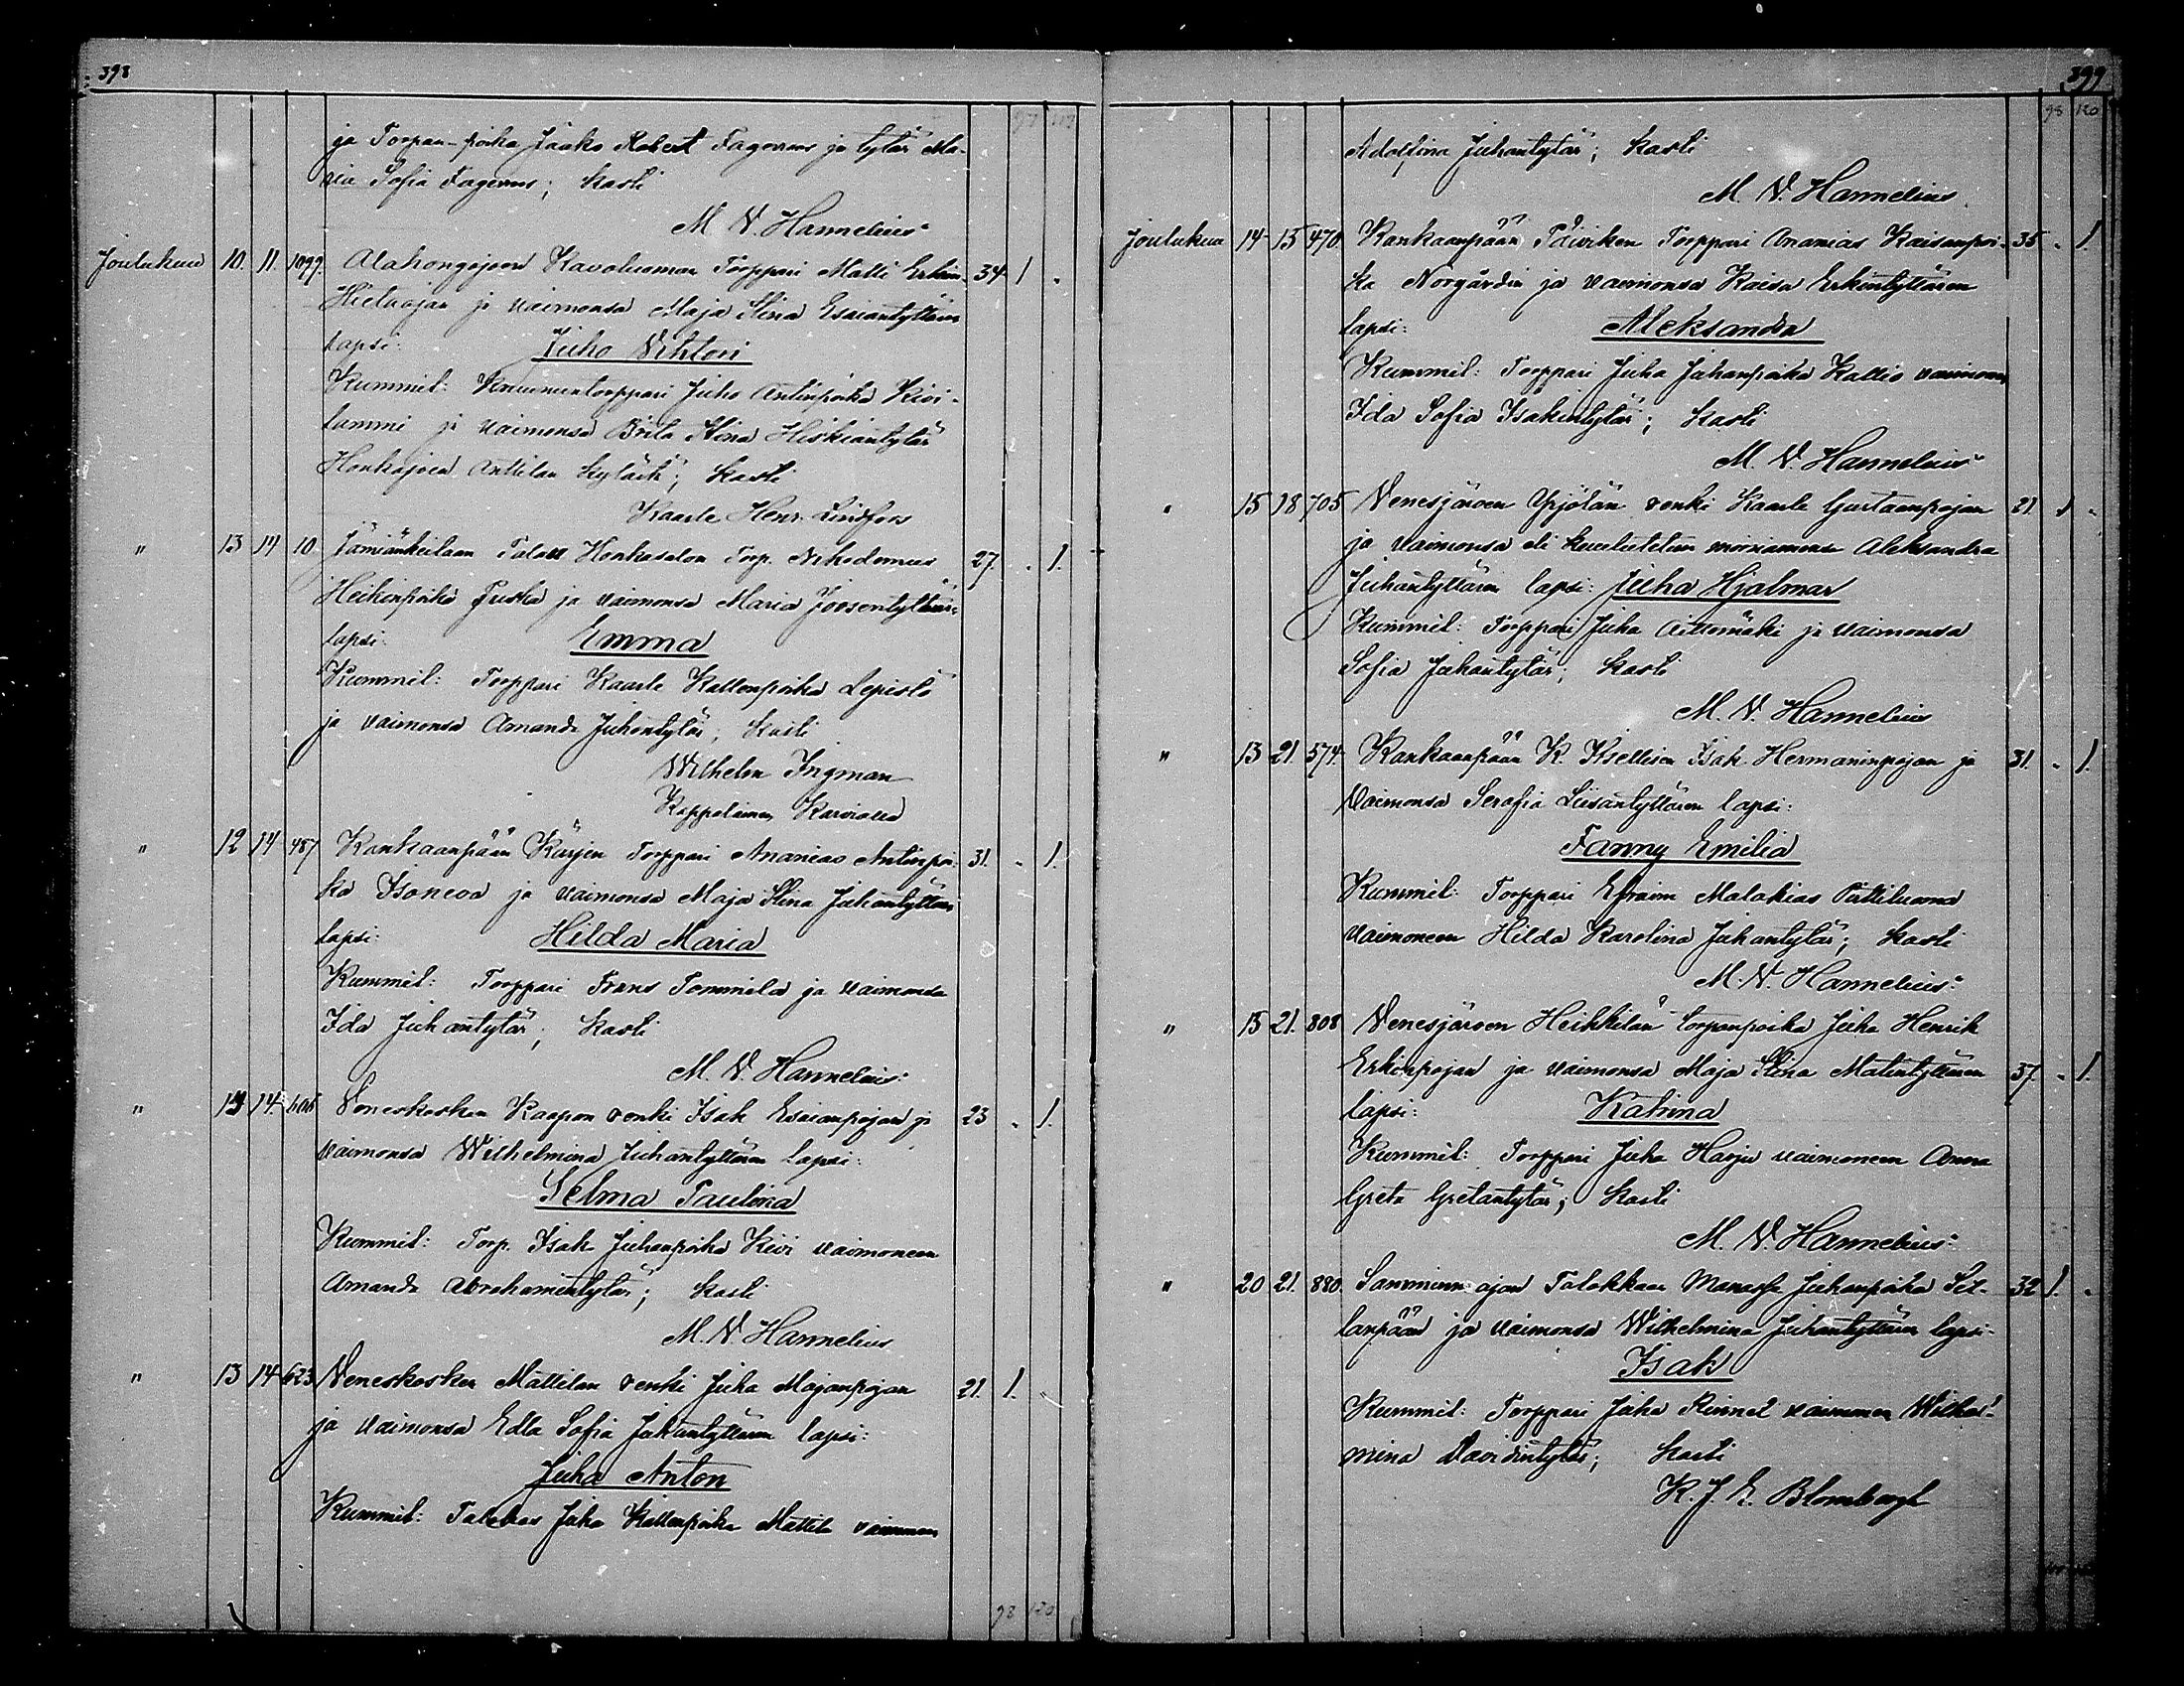 398
ja Torpan-poika Jaako Robert Fagerroos ja tytär Ma-
ria Sofia Fagerroos; Kasti
M. V. Hannelius
Joulukuu 10. 11. 1099. Alahongojoen Kavoluoman Torppari Matti Erkin- 34. 1 "
Hietaojan ja vaimonsa Maja Stina Esaiantyttären
lapsi: Juho Vihtori
Kummit: Torppari Juho Antinpoika Kivi-
lammi ja vaimonsa Brita Stina Hiskiantytär
Honkajoen Anttilan kylästä; Kasti
Kaarle Henr. Lindfors
" 13 14 10 Jämiänkeilaan Talon Honkasalon Torp. Nikodemus 27. . 1.
Heikinpoika Juska ja vaimonsa Maria Joosentyttären
lapsi: Emma
Kummit: Torppari Kaarle Kallenpoika Lepistö
ja vaimonsa Amanda Juhantytär; Kasti
Wilhelm Ingman
Kappalainen Karvialla
" 12 14 487 Kankaanpään Kärjen Torppari Ananias Antinpoi- 31. " 1.
ka Isoneva ja vaimonsa Maja Stina Juhantyttären
lapsi: Hilda Maria
Kummit: Torppari Frans Tommila ja vaimonsa
Ida Juhantytär; Kasti
M. V. Hannelius
" 13 14 606 Veneskosken Kaapon renki Isak Esaianpojan ja 23 " 1.
vaimonsa Wilhelmina Juhantyttären lapsi:
Selma Pauliina
Kummit: Torp. Isak Juhanpoika Kivi vaimoneen
Amanda Abrahamintytär; Kasti
M. V. Hannelius
" 13 14 623 Veneskosken Mattilan renki Juha Majanpojan 21. 1. "
ja vaimonsa Edla Sofia Juhantyttären lapsi:
Juha Anton
Kummit: Talokas Juha Kallenpoika Mattila vaimoneen
98 120
399
98 120
Adolfina Juhantytär; Kasti
M. V. Hannelius
Joulukuu 14 15 470 Kankaanpään Päivikon Torppari Ananias Kaisanpoi- 35 " 1.
ka Norgårdin ja vaimonsa Kaisa Erkintyttären
lapsi: Aleksandra
Kummit: Torppari Juha Juhanpoika Kallio vaimoneen
Ida Sofia Isakintytär; Kasti
M. V. Hannelius
" 15 18 705 Venesjärven Yrjölän renki Kaarle Gustaanpojan 21. 1 "
ja vaimonsa eli kuulutetun morsiamensa Aleksandra
Juhantyttären lapsi: Juha Hjalmar
Kummit: Torppari Juha Aittomäki ja vaimonsa
Sofia Juhantytär; Kasti
M. V. Hannelius
" 13 21. 574. Kankaanpään K. Itsellisen Isak Hermaninpojan ja 31. " 1.
vaimonsa Serafia Liisantyttären lapsi:
Fanny Emilia
Kummit: Torppari Efraim Malakias Pulliluoma
vaimoneen Hilda Karolina Juhantytär; Kasti
M. V. Hannelius
" 15 21. 808 Venesjärven Heikkilän torpanpoika Juha Henrik
Erkinpojan ja vaimonsa Maja Stina Matintyttären 37. " 1.
lapsi: Katrina
Kummit: Torppari Juha Harju vaimoneen Anna
Greta Gretantytär; Kasti
M. V. Hannelius
" 20 21. 880. Samminmajan Talokkaan Manasse Juhanpoika Sil- 32 1. "
lanpään ja vaimonsa Wilhelmina Juhantyttären lapsi
Isak
Kummit: Torppari Juha Rinnet vaimoneen Wilhel-
mina Davidintytär; Kasti
K. J. E. Blombergh